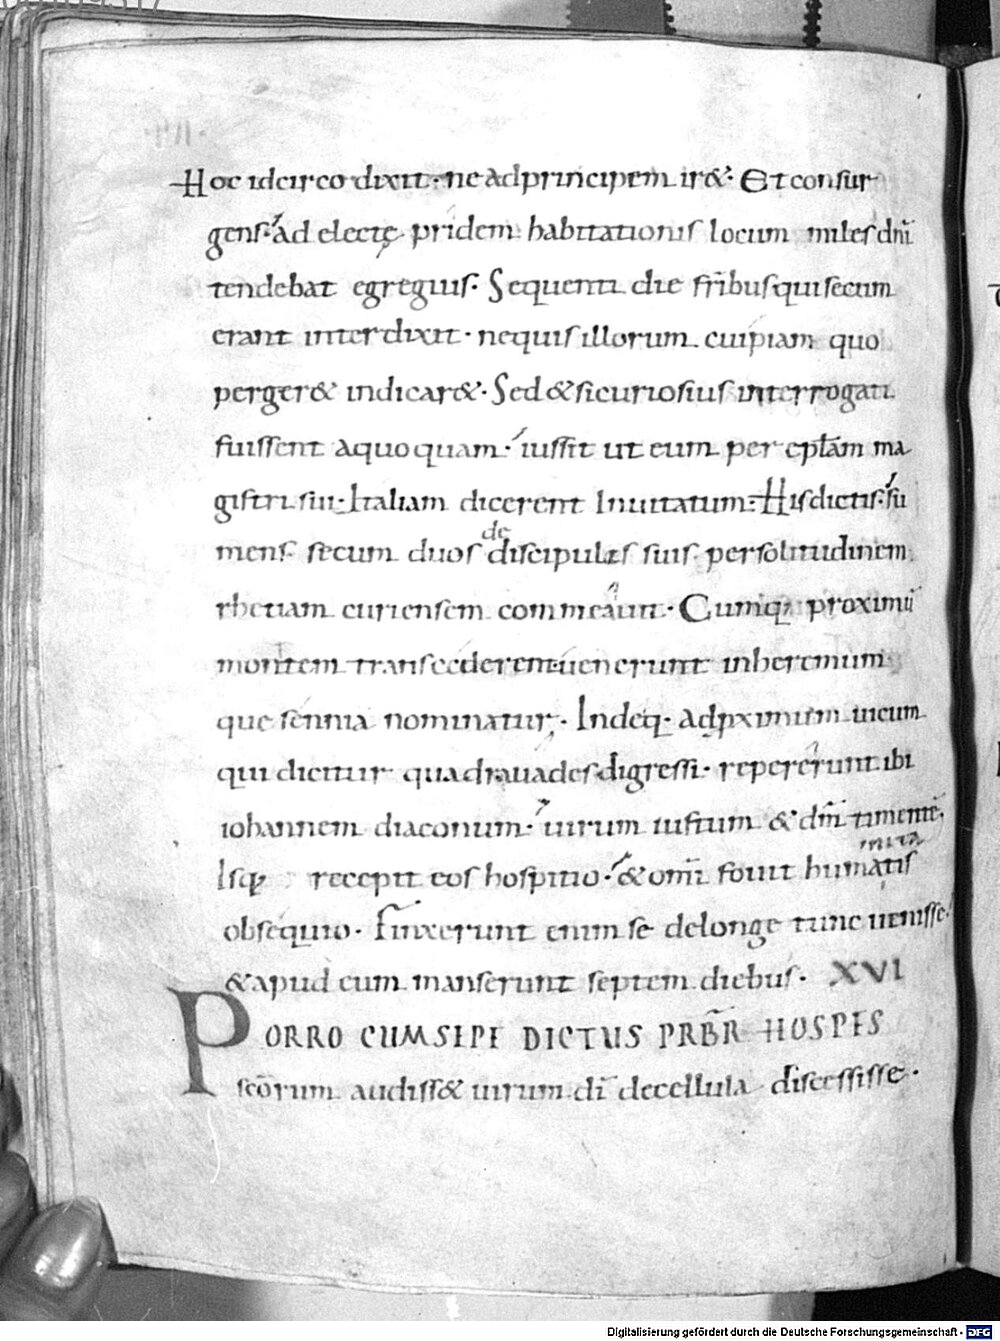 Hoc idcirco dixit· ne ad principem ir&· Et consur
gens· ad electę pridem habitationis locum miles dn̄i
tendebat egregius· Sequenti die fr̄ibus qui secum
erant interdixit· nequis illorum cuipiam quo
perger& indicar&· Sed & si curiosius interrogati
fuissent aquoquam· iussit ut eum per epl̄am ma
gistri sui· Italiam dicerent Inuitatum· His dictis· su
mens secum duos de discipulis suis per solitudinem
rhetiam curiensem commeauit· Cumq; proximū
montem transcederent uenerunt in heremum
que sennia nominatur· Indeq· ad pximum uicum
qui dicitur quadrauades digressi· repererunt ibi
iohannem diaconum· uirum iustum & dm̄ timentē,
Isq; recepit eos hospitio· & om̄i fouit humanitatis
obsequio· Finxerunt enim se delonge tunc uenisse·
& apud eum manserunt septem diebus· XVI
PORRO CUM SEPE DICTUS PRBR̄ HOSPES
scōrum audiss& uirum dī decellula discessisse·
Digitalisierung gefördert durch die Deutsche Forschungsgemeinschaft - DFG